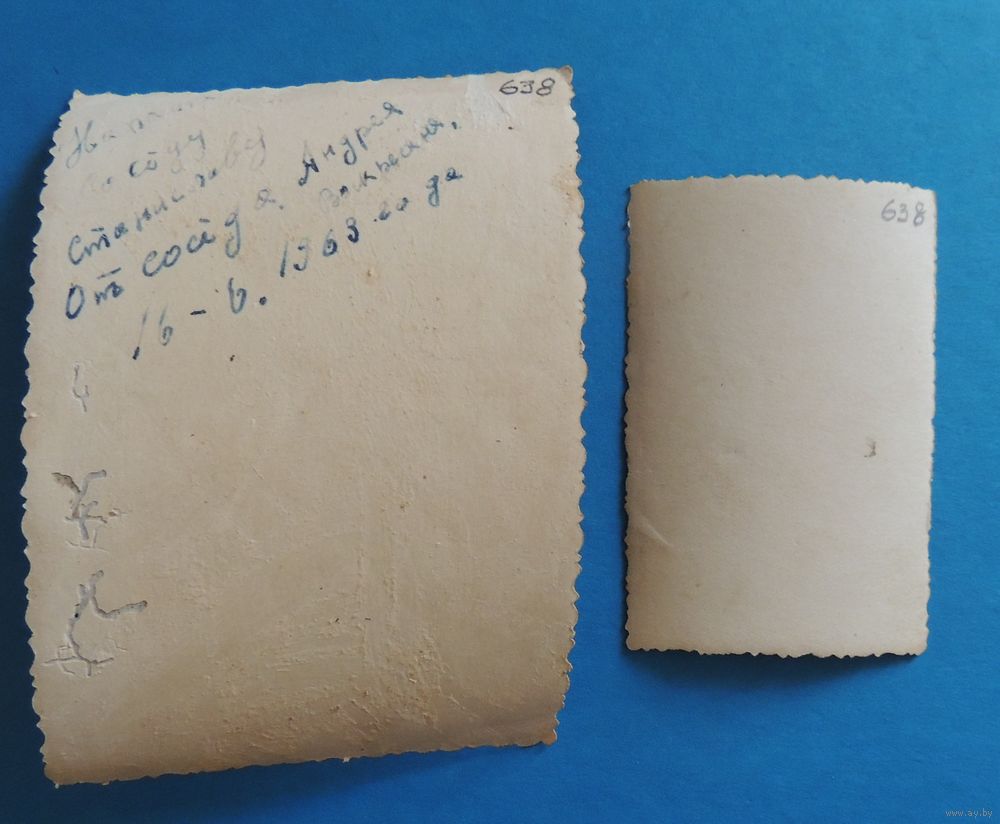 638
На
соседу
Станиславу
От соседа. Андрея
16 - 6. 1963 года
638
www.ay.by